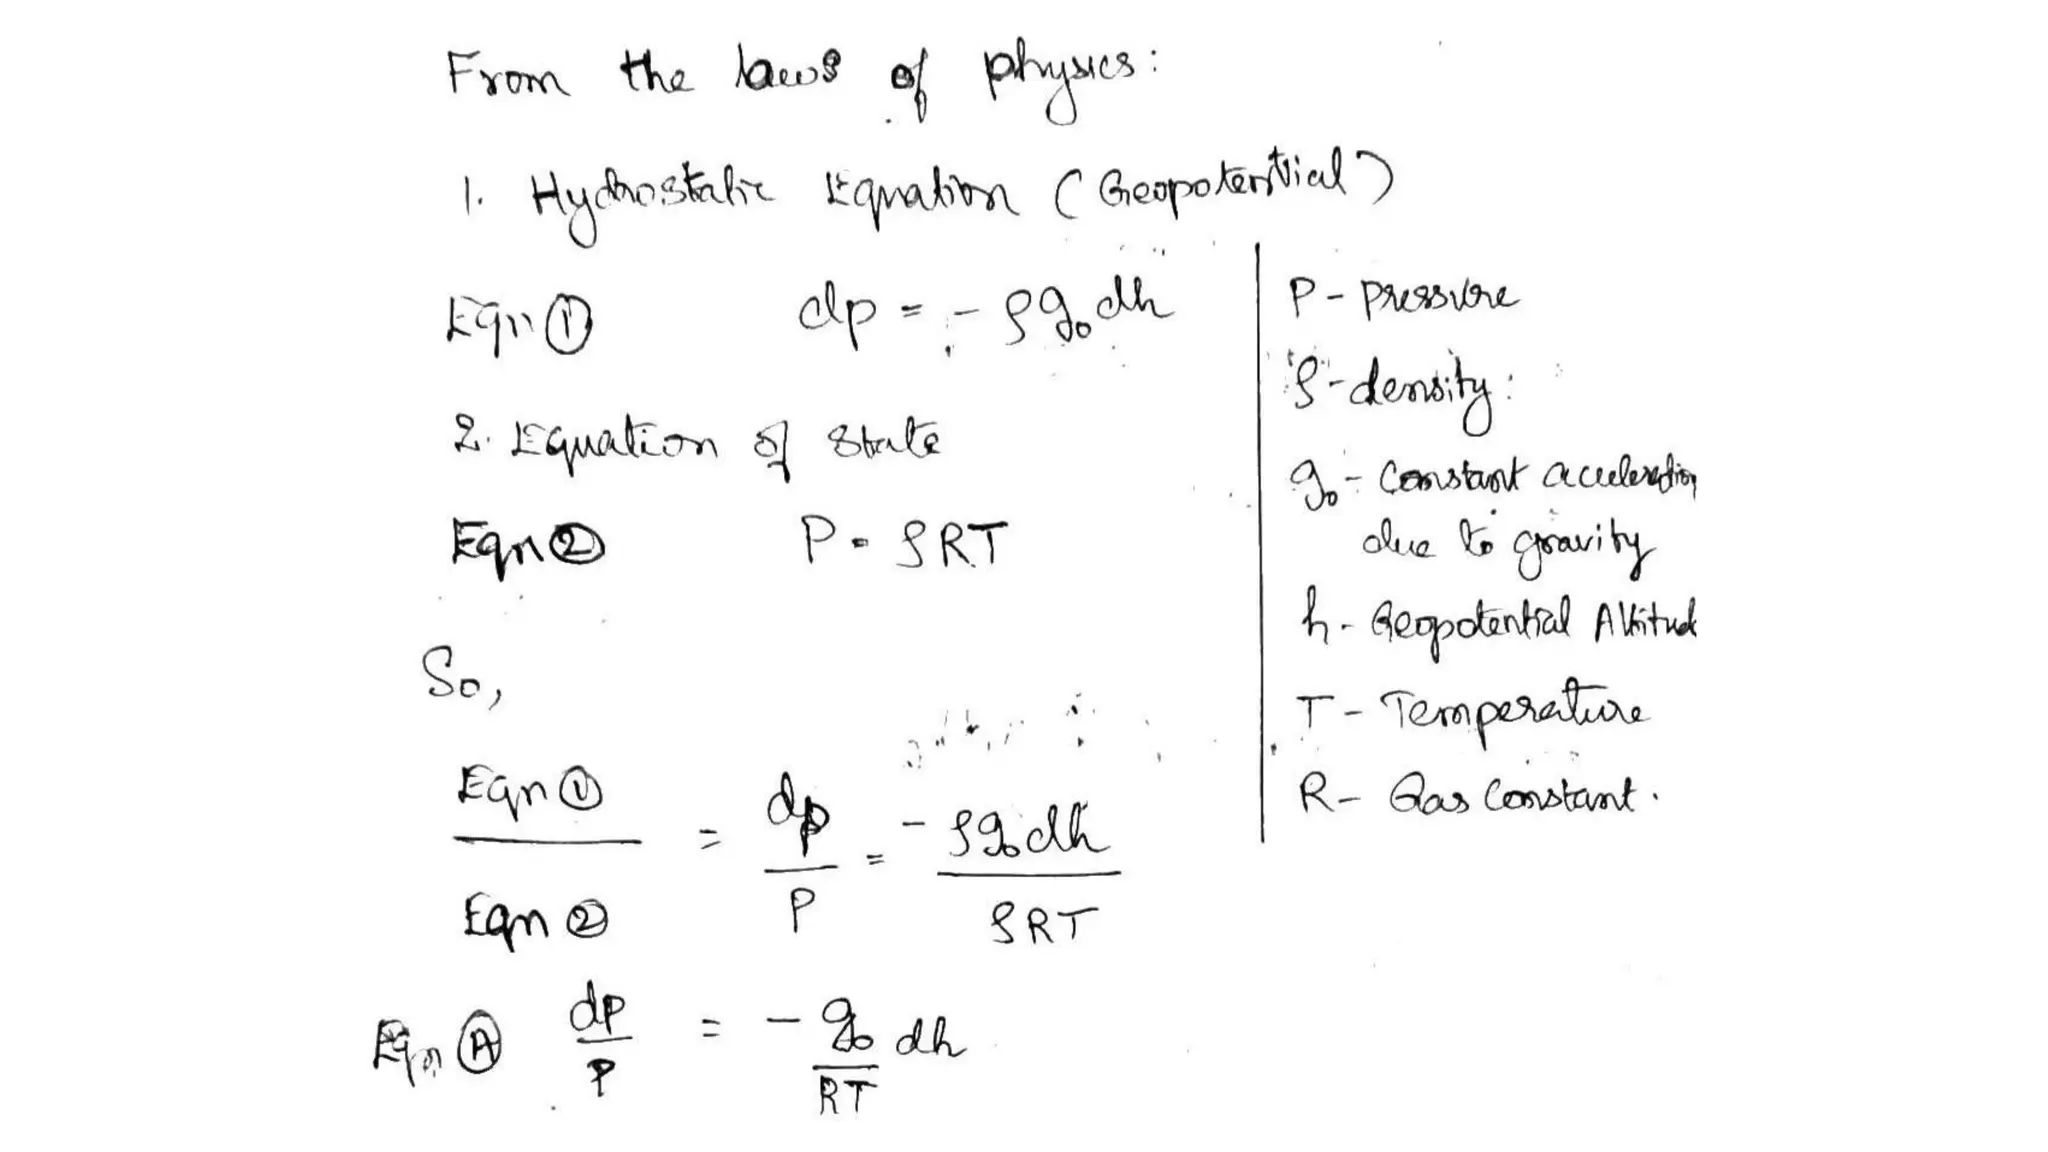 From the laws of physics:
1. Hydrostatic Equation (Geopotential)
Eqn ① dp = - ρg₀dh
2. Equation of State
Eqn ② P = ρRT
So,
Eqn ① / Eqn ② = dp / P = - ρg₀dh / ρRT
Eqn Ⓐ dp / P = - g₀ / RT dh
P - Pressure
ρ - density:
g₀ - Constant acceleration
due to gravity
h - Geopotential Altitude
T - Temperature
R - Gas Constant.